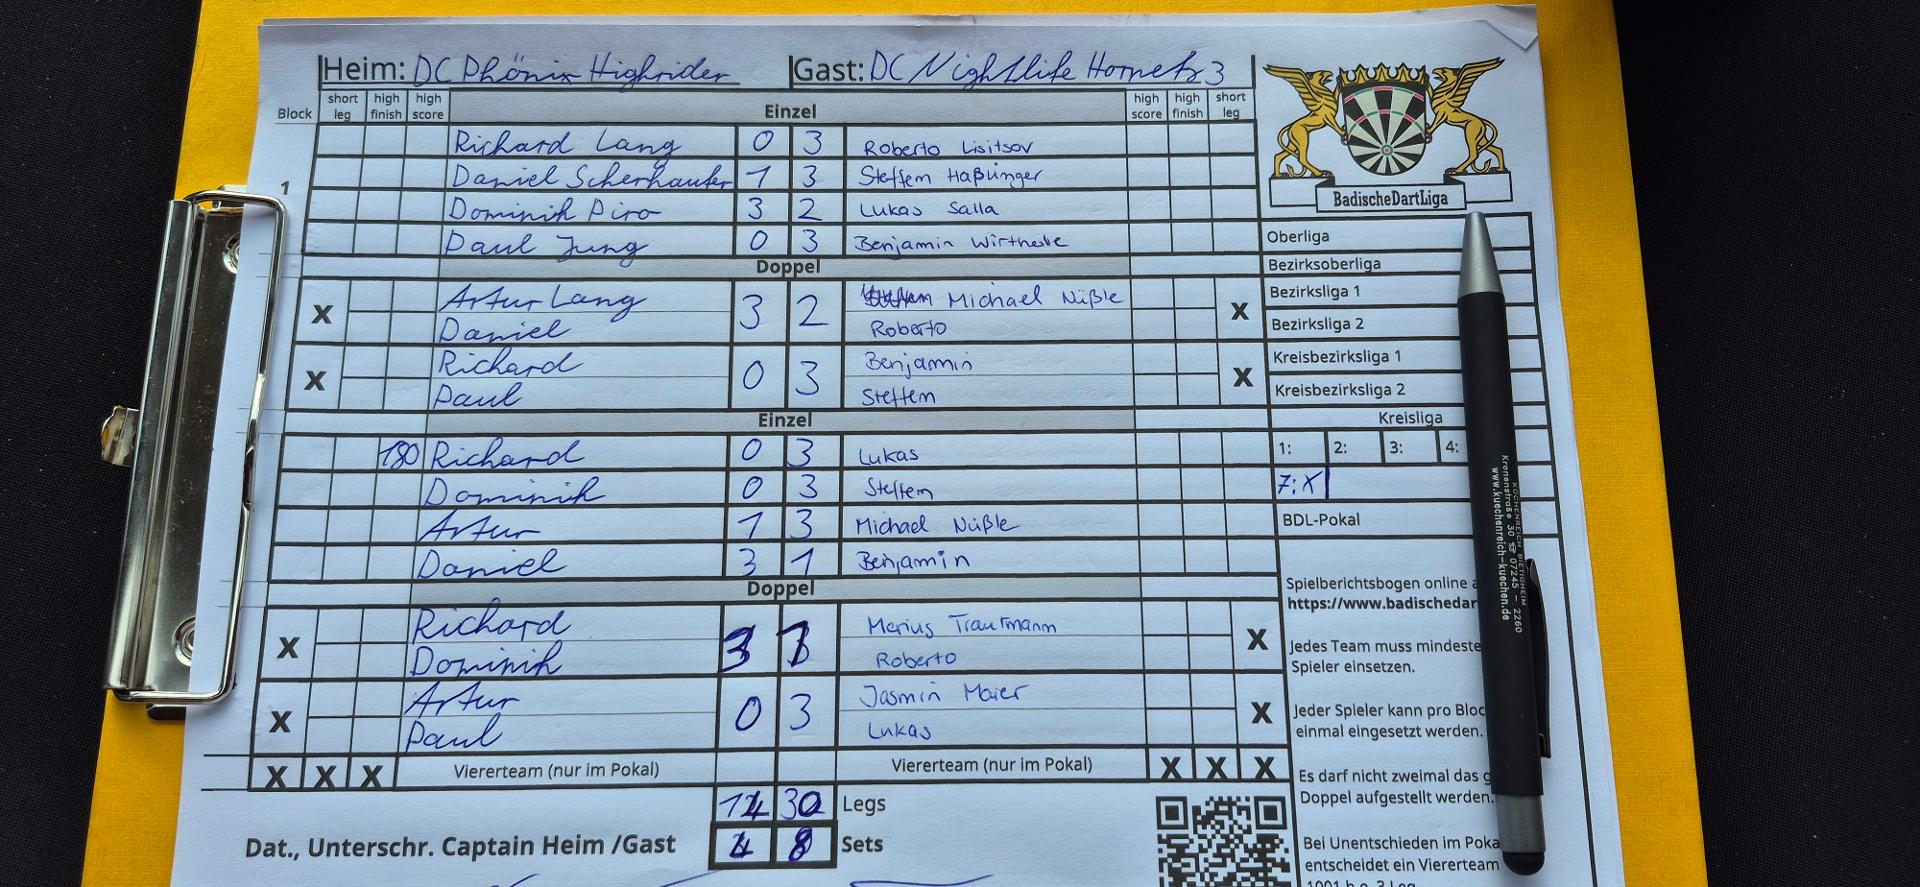 Heim: DC Phönix Highrider Gast: DC Nightlife Hornets 3
Block short leg high finish high score Einzel high score high finish short leg
1
Richard Lang 0 3 Roberto Lisitsov
Daniel Scherhaufer 1 3 Steffem Haßlinger
Dominik Piro 3 2 Lukas Salla
Paul Jung 0 3 Benjamin
Doppel
X Artur Lang 3 2 Michael Nüßle X
Daniel Roberto
X Richard 0 3 Benjamin X
Paul Steffem
Einzel
180 Richard 0 3 Lukas
Dominik 0 3 Steffem
Artur 1 3 Michael Nüßle
Daniel 3 1 Benjamin
Doppel
X Richard 3 1 Merius Trautmann X
Dominik Roberto
X Artur 0 3 Jasmin Maier X
Paul Lukas
X X X Viererteam (nur im Pokal) Viererteam (nur im Pokal) X X X
Legs
Dat., Unterschr. Captain Heim /Gast 4 8 Sets
BadischeDartLiga
Oberliga
Bezirksoberliga
Bezirksliga 1
Bezirksliga 2
Kreisbezirksliga 1
Kreisbezirksliga 2
Kreisliga
1: 2: 3: 4:
7: X
BDL-Pokal
Spielberichtsbogen online
https://www.badischedar
Jedes Team muss mindeste
Spieler einsetzen.
Jeder Spieler kann pro Bloc
einmal eingesetzt werden.
Es darf nicht zweimal das g
Doppel aufgestellt werden.
Bei Unentschieden im Poka
entscheidet ein Viererteam
KÜCHENREICH BIETIGHEIM
Kronenstraße 30 ☎ 07245 - 2260
www.kuechenreich-kuechen.de